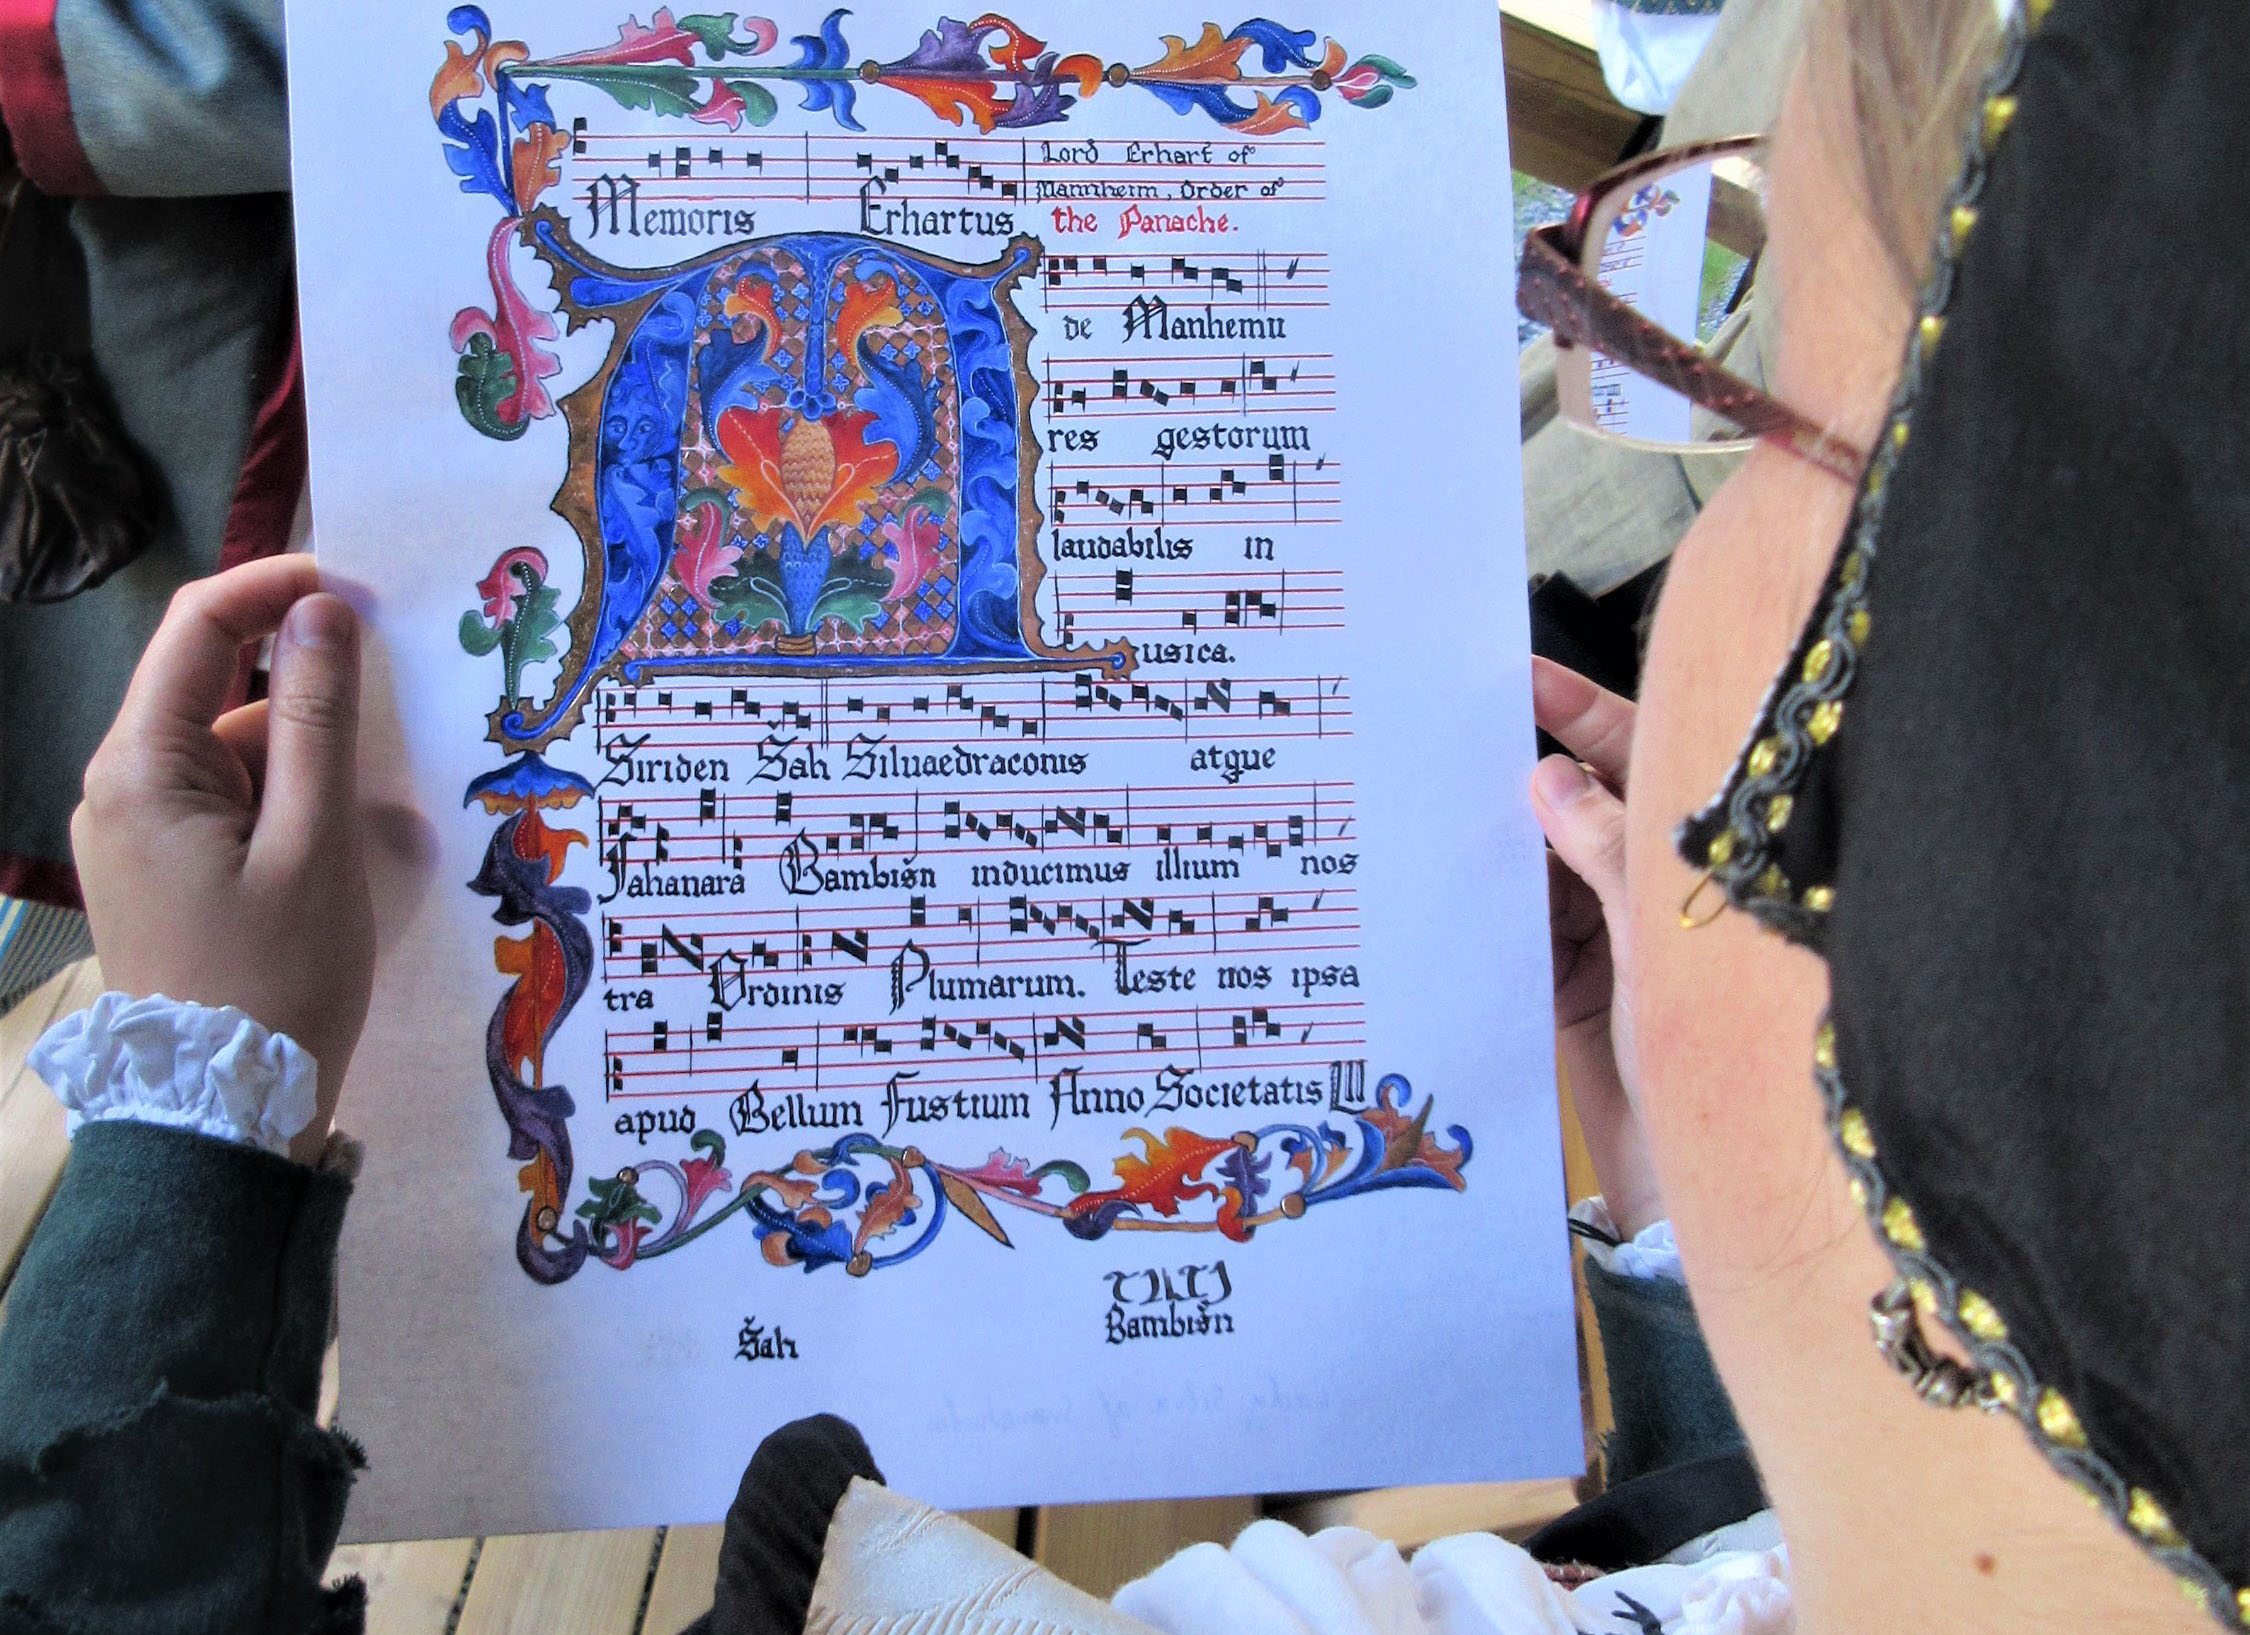 Lord Erhart of
Mannheim, Order of
Memoris Erhartus the Panache.
de Manhemu
res gestorum
laudabilis in
usica.
Siriden Šah Siluaedraconis atque
Jahanara Bambišn inducimus illium nos
tra Ordinis Plumarum. Teste nos ipsa
apud Bellum Fustium Anno Societatis LII
Šah
Bambišn